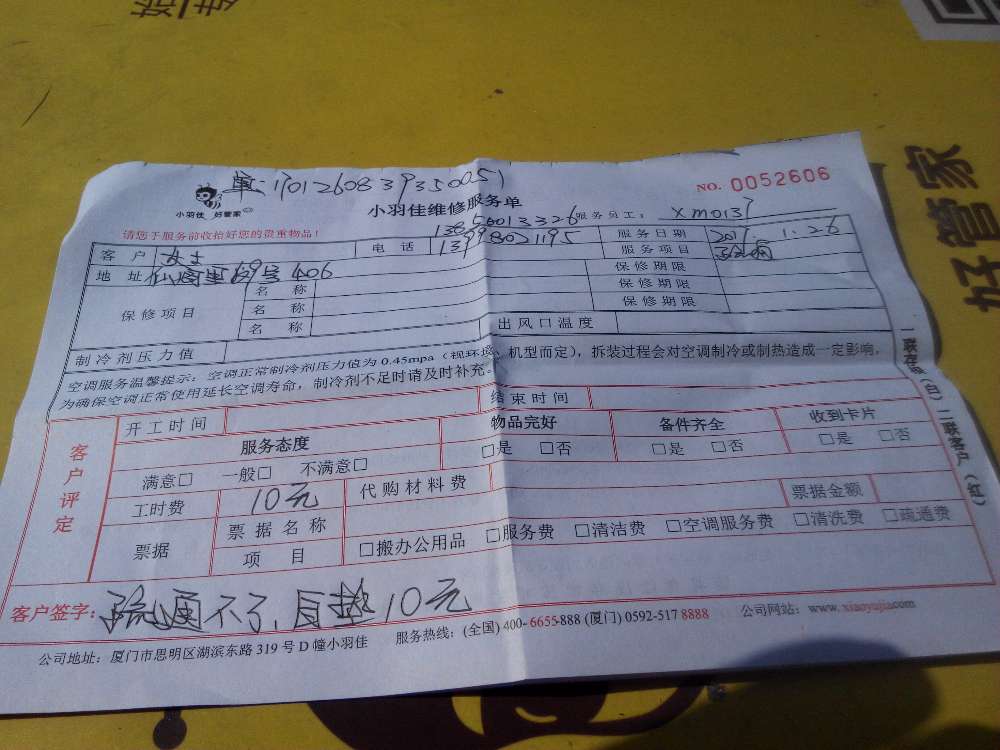 单:1701260839350051
NO. 0052606
小羽佳 好管家
小羽佳维修服务单
请您于服务前收拾好您的贵重物品!
服务员工: xm0137
客户 女士
电话
13998021195
服务日期 2017.1.26
地址
69号406
服务项目
保修项目
名称
保修期限
名称
保修期限
名称
保修期限
制冷剂压力值
出风口温度
空调服务温馨提示:空调正常制冷剂压力值为0.45mpa(视环境、机型而定),拆装过程会对空调制冷或制热造成一定影响,
为确保空调正常使用延长空调寿命,制冷剂不足时请及时补充。
客户评定
开工时间
结束时间
服务态度
物品完好
备件齐全
收到卡片
满意□ 一般□ 不满意□
□是 □否
□是 □否
□是 □否
工时费 10元
代购材料费
票据金额
票据
票据名称
项目
□搬办公用品 □服务费 □清洁费 □空调服务费 □清洗费 □疏通费
客户签字: 疏通不了,自垫10元
公司地址:厦门市思明区湖滨东路319号D幢小羽佳
服务热线:(全国)400-6655-888(厦门)0592-517 8888
公司网站:www.xiaoyujia.com
一联存根(白)二联客户(红)
好管家